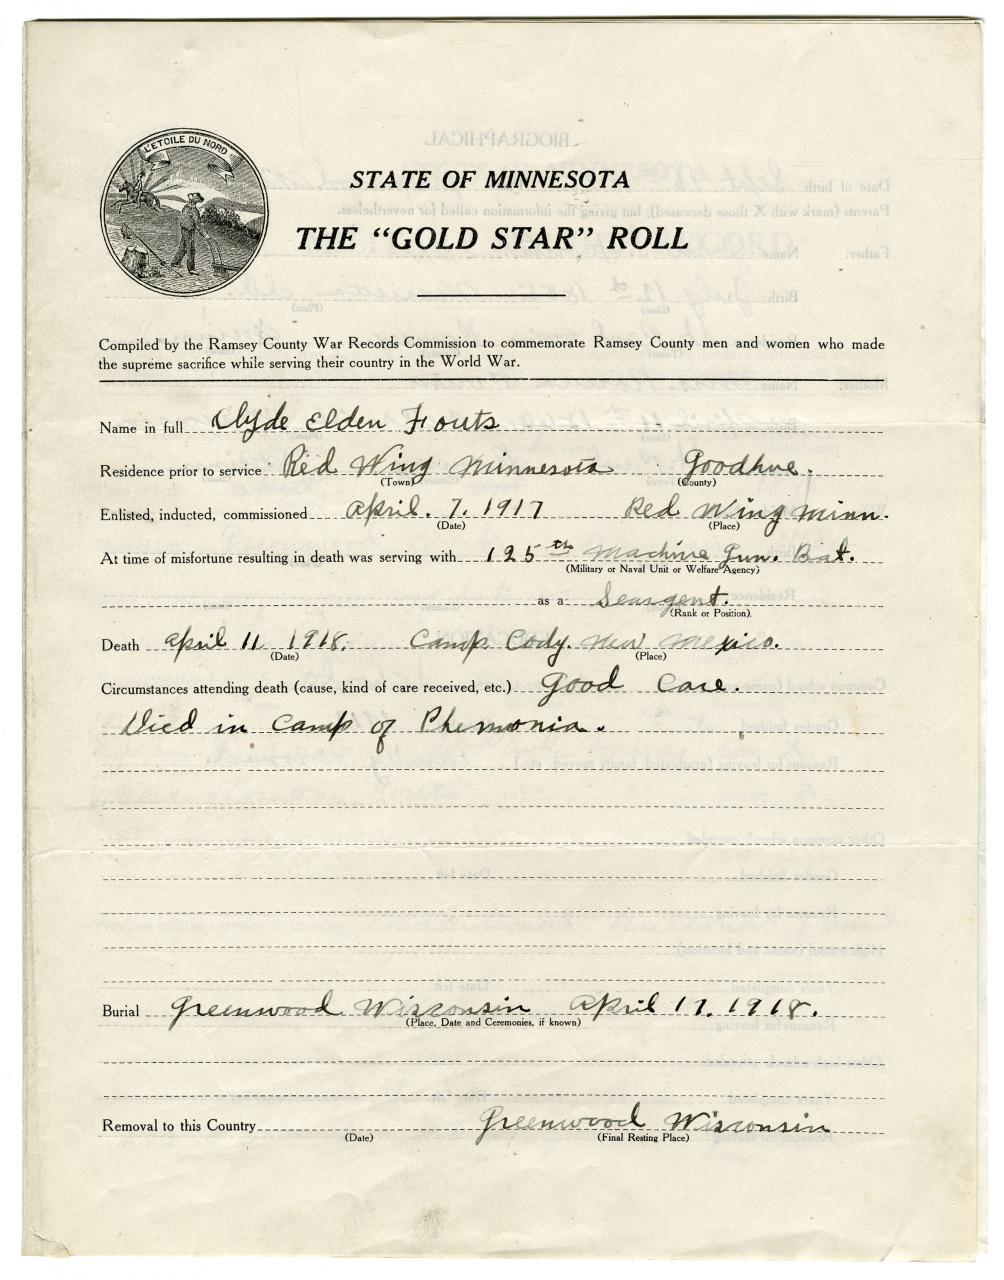 L'ETOILE DU NORD
STATE OF MINNESOTA
THE “GOLD STAR” ROLL
Compiled by the Ramsey County War Records Commission to commemorate Ramsey County men and women who made
the supreme sacrifice while serving their country in the World War.
Name in full Clyde Elden Fouts
Residence prior to service Red Wing Minnesota Goodhue.
(Town) (County)
Enlisted, inducted, commissioned April. 7. 1917 Red Wing Minn.
(Date) (Place)
At time of misfortune resulting in death was serving with 125th Machine Gun. Bat.
(Military or Naval Unit or Welfare Agency)
as a Seargent.
(Rank or Position).
Death April 11 1918. Camp Cody. New Mexico.
(Date) (Place)
Circumstances attending death (cause, kind of care received, etc.) Good Care.
Died in Camp of Phemonia.
Burial Greenwood Wisconsin April 17. 1918.
(Place, Date and Ceremonies, if known)
Removal to this Country Greenwood Wisconsin
(Date) (Final Resting Place)